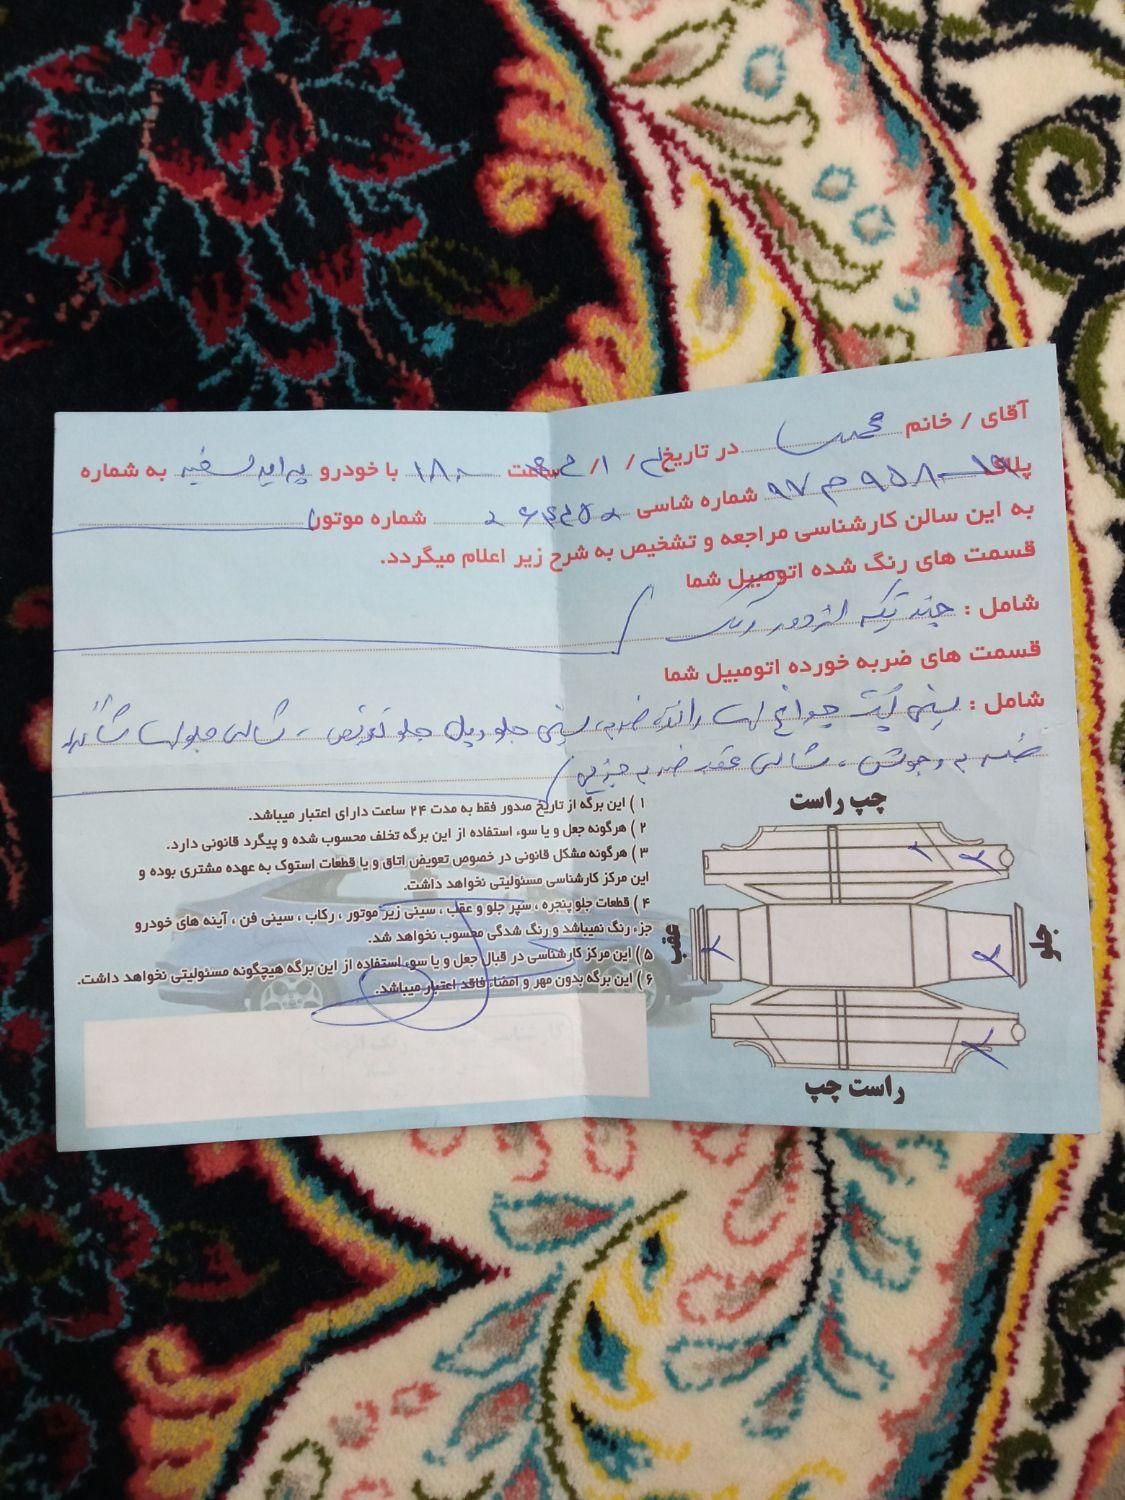 آقای / خانم محمدی در تاریخ / ۱ / ساعت ۱۸ با خودرو پراید سفید به شماره
پلاک ۹۵۸ م ۹۷ شماره شاسی شماره موتور
به این سالن کارشناسی مراجعه و تشخیص به شرح زیر اعلام میگردد.
قسمت های رنگ شده اتومبیل شما
شامل : چند تیکه از دور رنگ
قسمت های ضربه خورده اتومبیل شما
شامل : سینی پشت چراغ سمت راننده ضربه، سینی جلو و پل جلو تعویض ، شاسی جلو سمت شاگرد
ضربه و جوش ، شاسی عقب ضربه جزیی
۱ ) این برگه از تاریخ صدور فقط به مدت ۲۴ ساعت دارای اعتبار میباشد.
۲ ) هرگونه جعل و یا سوء استفاده از این برگه تخلف محسوب شده و پیگرد قانونی دارد.
۳ ) هرگونه مشکل قانونی در خصوص تعویض اتاق و یا قطعات استوک به عهده مشتری بوده و
این مرکز کارشناسی مسئولیتی نخواهد داشت.
۴ ) قطعات جلو پنجره ، سپر جلو و عقب ، سینی زیر موتور ، رکاب ، سینی فن ، آینه های خودرو
جزء رنگ نمیباشد و رنگ شدگی محسوب نخواهد شد.
۵ ) این مرکز کارشناسی در قبال جعل و یا سوء استفاده از این برگه هیچگونه مسئولیتی نخواهد داشت.
۶ ) این برگه بدون مهر و امضاء فاقد اعتبار میباشد.
چپ راست
عقب
جلو
راست چپ